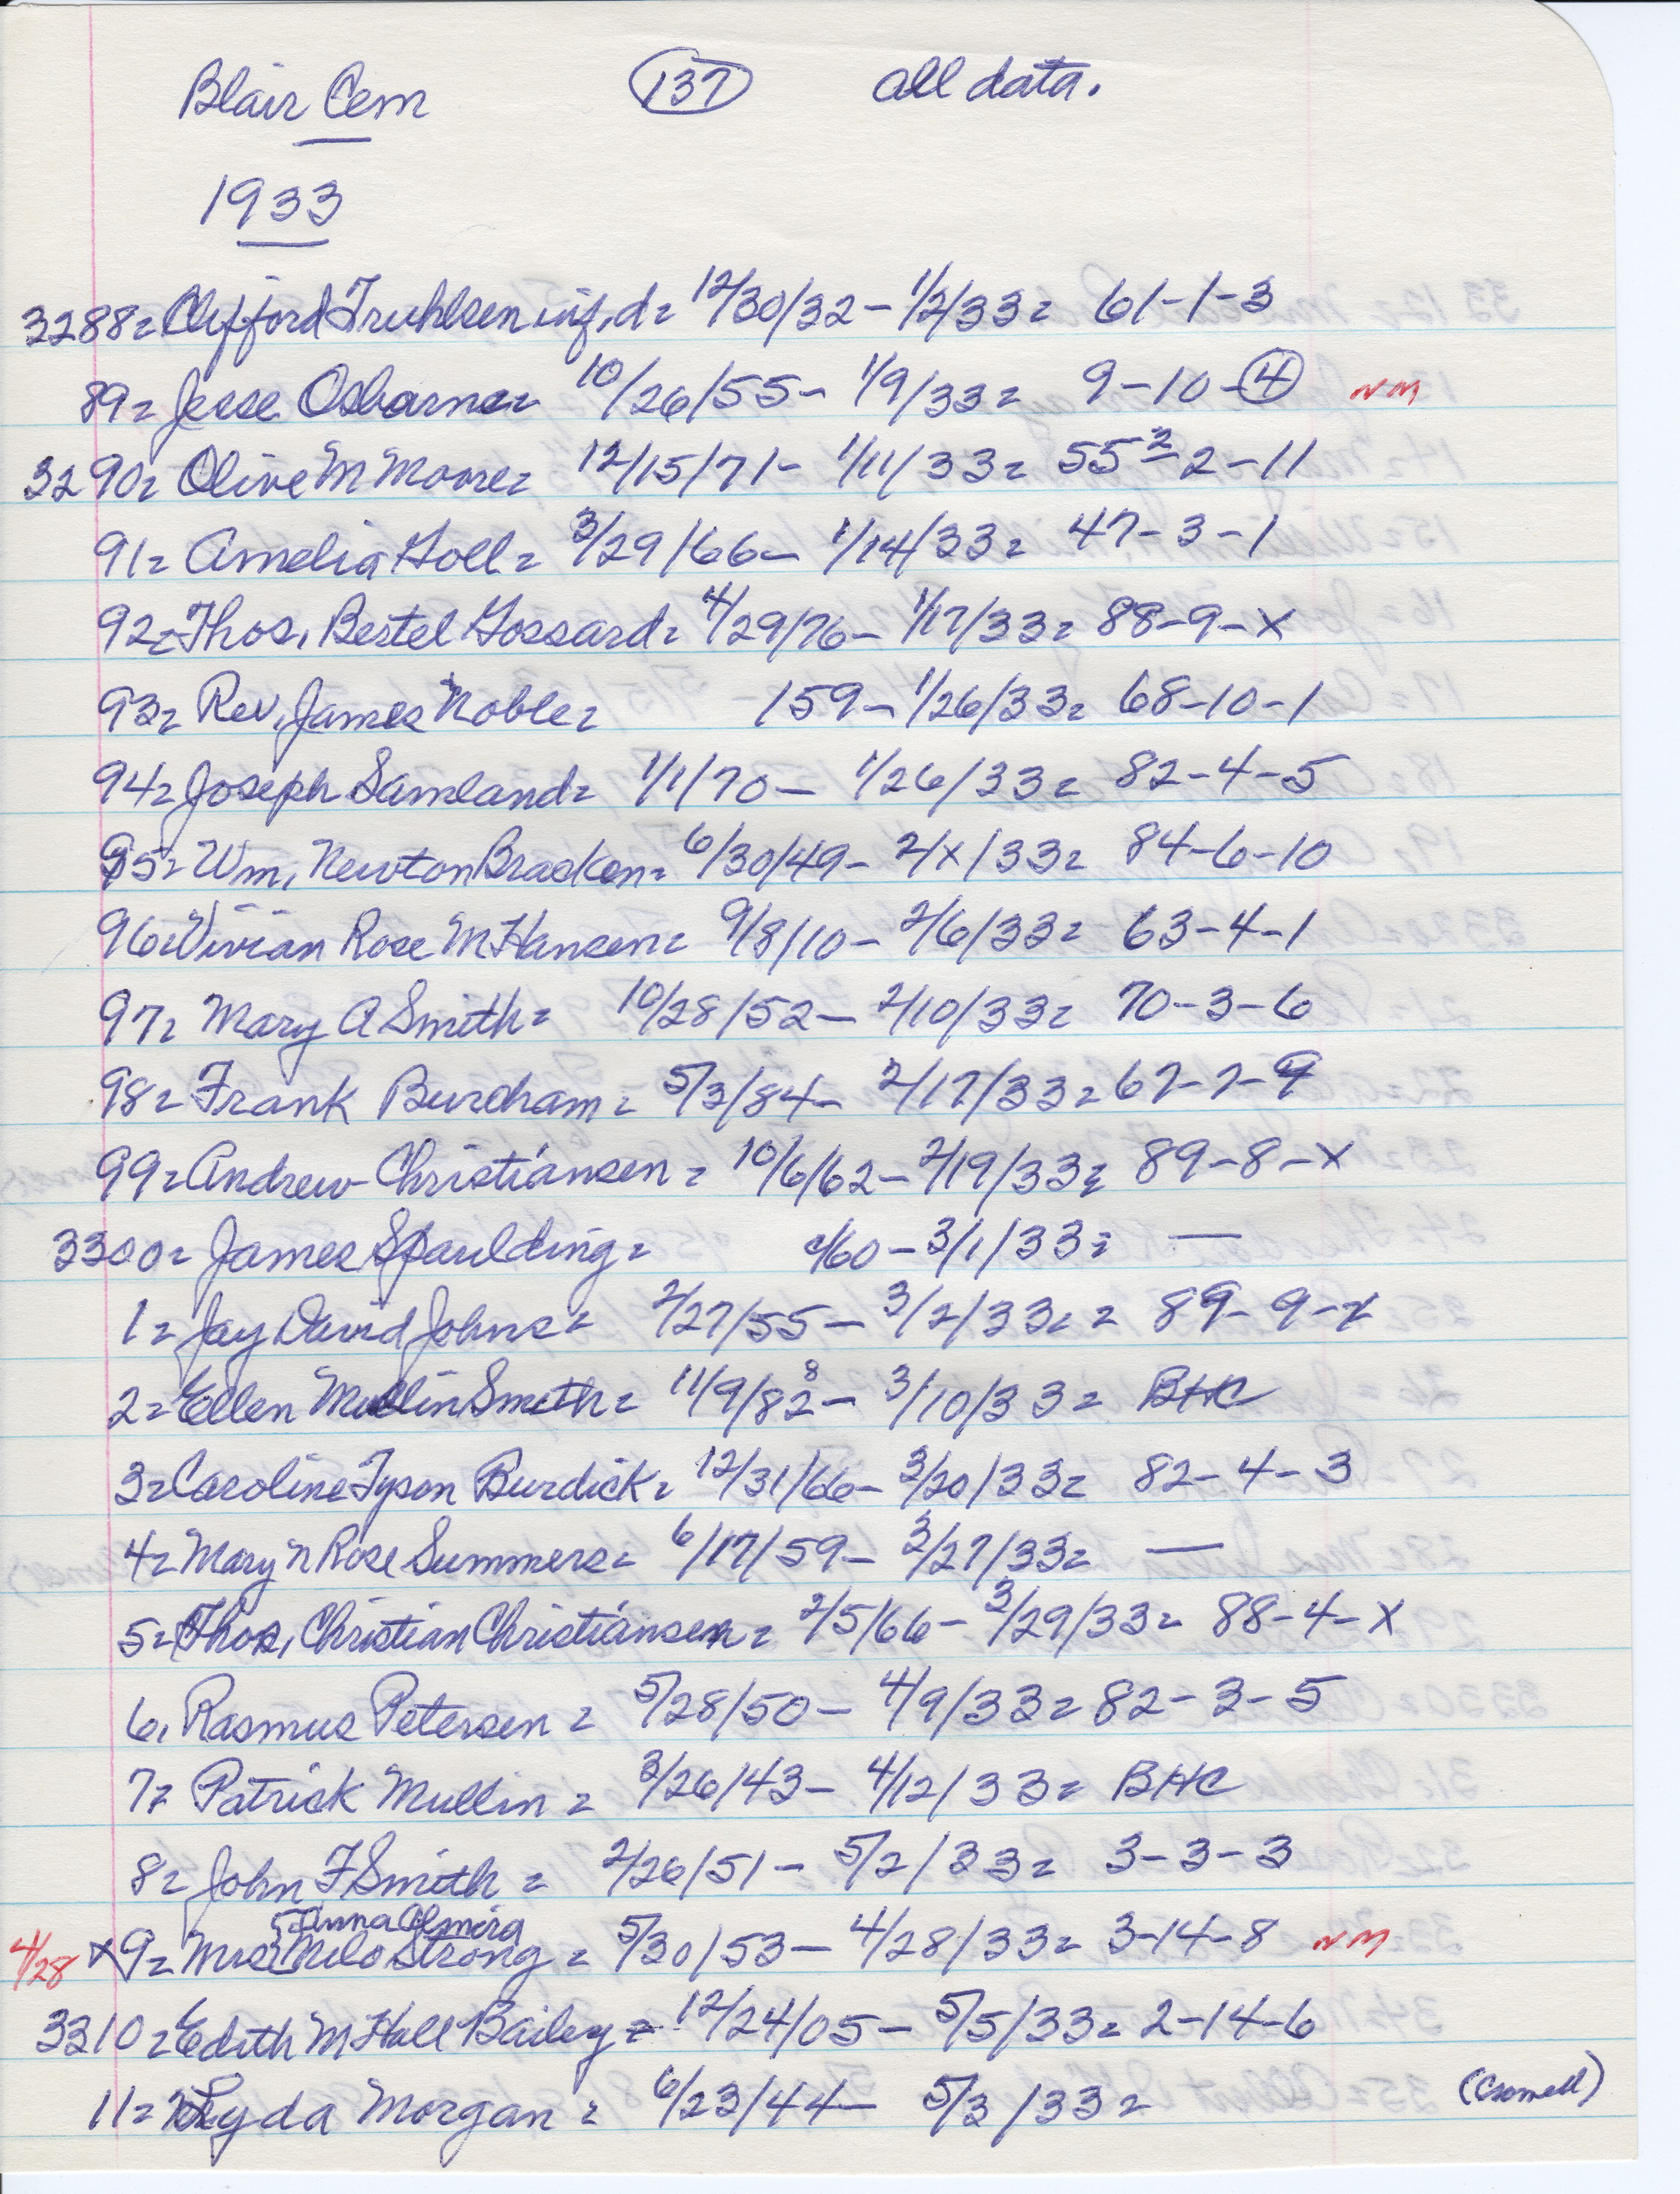 Blair Cem (137) all data.
1933
3288= Clifford Truhlsen inf. d= 12/30/32 - 1/2/33= 61-1-3
89= Jesse Osborne= 10/26/55 - 1/9/33= 9-10-(4) NM
3290= Olive M Moore= 12/15/71 - 1/11/33= 55 - 2 - 11
91= Amelia Goll= 3/29/66 - 1/14/33= 47-3-1
92= Thos. Bertel Gossard= 4/29/76 - 1/17/33= 88-9-X
93= Rev. James Noble= 159 - 1/26/33= 68-10-1
94= Joseph Samland= 1/1/70 - 1/26/33= 82-4-5
95= Wm. Newton Bracken= 6/30/49 - 2/X/33= 84-6-10
96= Vivian Rose M Hansen= 9/8/10 - 2/6/33= 63-4-1
97= Mary A Smith= 10/28/52 - 2/10/33= 70-3-6
98= Frank Burcham= 5/3/84 - 2/17/33= 67-7-9
99= Andrew Christiansen= 10/6/62 - 2/19/33= 89-8-X
3300= James Spaulding= c/60 - 3/1/33= —
1= Jay David Johns= 2/27/55 - 3/2/33= = 89-9-X
2= Ellen Mullin Smith= 11/9/82 8 - 3/10/33= BHC
3= Caroline Tyson Burdick= 12/31/66 - 3/20/33= 82-4-3
4= Mary N Rose Summers= 6/17/59 - 3/27/33= —
5= Thos. Christian Christiansen= 2/5/66 - 3/29/33= 88-4-X
6. Rasmus Petersen= 5/28/50 - 4/9/33= 82-3-5
7= Patrick Mullin= 3/26/43 - 4/12/33= BHC
8= John F Smith= 2/26/51 - 5/2/33= 3-3-3
Anna Almira
4/28 X9= Mrs Milo Strong= 5/30/53 - 4/28/33= 3-14-8 NM
3310= Edith M Hall Bailey= 12/24/05 - 5/5/33= 2-14-6
11= Lyda Morgan= 6/23/44 - 5/3/33= (Cromell)